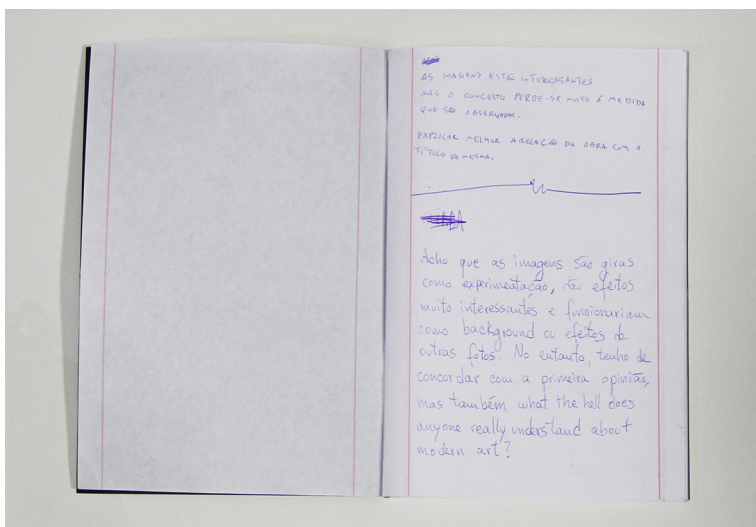 AS IMAGENS ESTÃO INTERESSANTES
MAS O CONCEITO PERDE-SE MUITO À MEDIDA
QUE SÃO OBSERVADAS.
EXPLICAR MELHOR A RELAÇÃO DA OBRA COM O
TÍTULO DA MESMA.
Acho que as imagens são giras
como experimentação, são efeitos
muito interessantes e funcionariam
como background ou efeitos de
outras fotos. No entanto, tenho de
concordar com a primeira opinião,
mas também what the hell does
anyone really understand about
modern art?